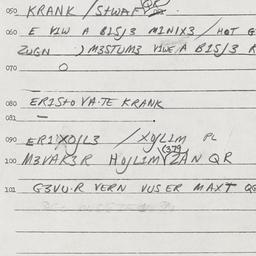 050 KRANK / S+WAF
060 E VIW A B1SJ3 M1N1X3 / HOT G
ZWGN ) M3STUM3 VIWE A B1SJ3 R
070 O
080 ER1S+O VA·TE KRANK
081 —
090 ER1 XOJL3 / XOJL1M PL
(379
100 M3VAR3R HOJL1M ZAN QR
101 G3VU·R VERN VUSER MAXT QG